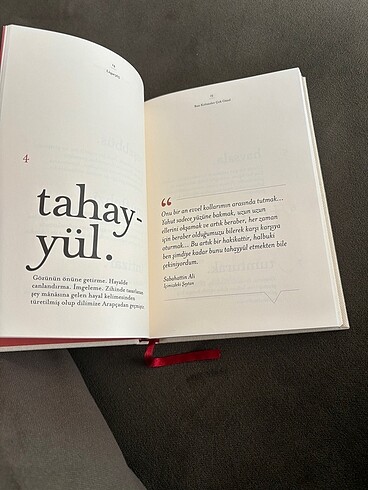 4
tahay-
yül.
Gözünün önüne getirme. Hayalde
canlandırma. İmgeleme. Zihinde tasarlanan
şey mânâsına gelen hayal kelimesinden
türetilmiş olup dilimize Arapçadan geçmiştir.
“
Onu bir an evvel kollarımın arasında tutmak...
Yahut sadece yüzüne bakmak, uzun uzun
ellerini okşamak ve artık beraber, her zaman
için beraber olduğumuzu bilerek karşı karşıya
oturmak... Bu artık bir hakikattir, halbuki
ben şimdiye kadar bunu tahayyül etmekten bile
çekiniyordum.
Sabahattin Ali
İçimizdeki Şeytan